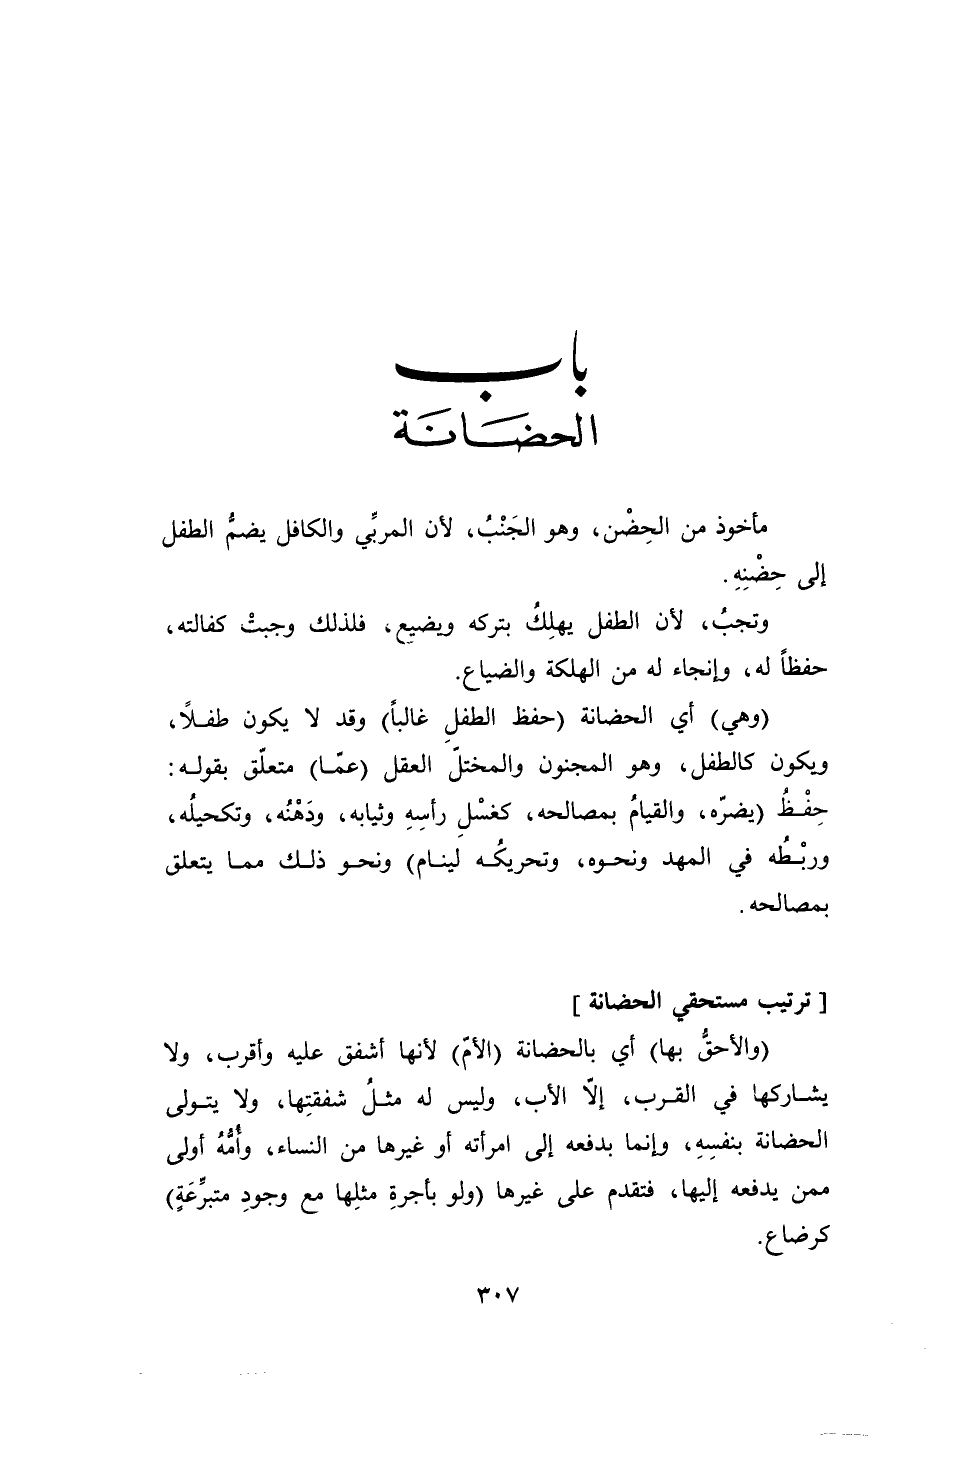 باب
الحضَانَة
مأخوذ من الحِضْن، وهو الجَنْبُ، لأن المربِّي والكافل يضمُّ الطفل
إلى حِضْنِهِ.
وتجبُ، لأن الطفل يهلِكُ بتركه ويضيع، فلذلك وجبتْ كفالته،
حفظاً له، وإنجاء له من الهلكة والضياع.
(وهي) أي الحضانة (حفظ الطفلِ غالباً) وقد لا يكون طفلاً،
ويكون كالطفل، وهو المجنون والمختلّ العقل (عمّا) متعلّق بقوله:
حِفْظُ (يضرّه، والقيامُ بمصالحه، كغسْلِ رأسِهِ وثيابه، ودَهْنُه، وتكحيلُه،
وربْطُه في المهد ونحوه، وتحريكُه لينام) ونحو ذلك مما يتعلق
بمصالحه.
[ ترتيب مستحقي الحضانة ]
(والأحقُّ بها) أي بالحضانة (الأمّ) لأنها أشفق عليه وأقرب، ولا
يشاركها في القرب، إلّا الأب، وليس له مثلُ شفقتِها، ولا يتولى
الحضانة بنفسِهِ، وإنما بدفعه إلى امرأته أو غيرها من النساء، وأُمُّهُ أولى
ممن يدفعه إليها، فتقدم على غيرها (ولو بأجرةِ مثلِها مع وجودِ متبرِّعَةٍ)
كرضاع.
٣٠٧